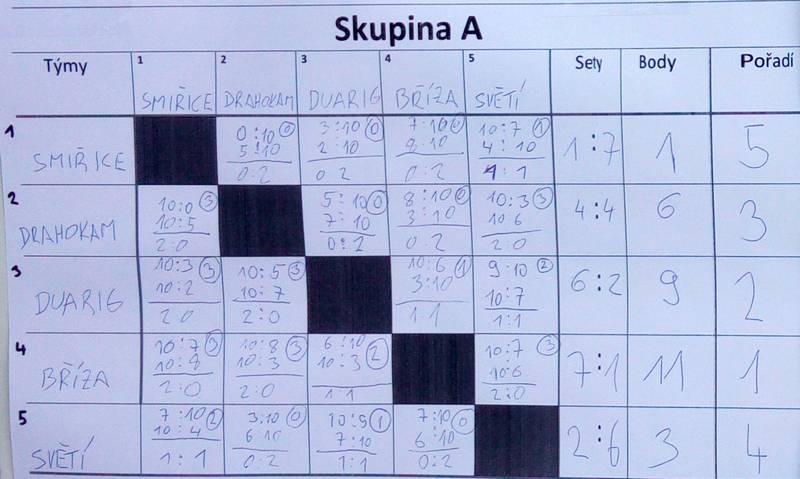 Skupina A
Týmy 1 2 3 4 5 Sety Body Pořadí
SMIŘICE DRAHOKAM DUARIG BŘÍZA SVĚTÍ
1 SMIŘICE 0:10 0 3:10 0 7:10 0 10:7 1 1:7 1 5
5:10 2:10 8:10 4:10
0:2 0 2 0:2 1:1
2 DRAHOKAM 10:0 3 5:10 0 8:10 0 10:3 3 4:4 6 3
10:5 7:10 3:10 10 6
2:0 0:2 0 2 2 0
3 DUARIG 10:3 3 10:5 3 10:6 1 9 10 2 6:2 9 2
10:2 10:7 3:10 10:7
2 0 2:0 1 1 1:1
4 BŘÍZA 10:7 3 10:8 3 6:10 2 10:7 3 7:1 11 1
10:8 10:3 10:3 10:6
2:0 2:0 1 1 2:0
5 SVĚTÍ 7:10 2 3:10 0 10:9 1 7:10 0 2:6 3 4
10:4 6 10 7:10 6:10
1:1 0:2 1:1 0:2